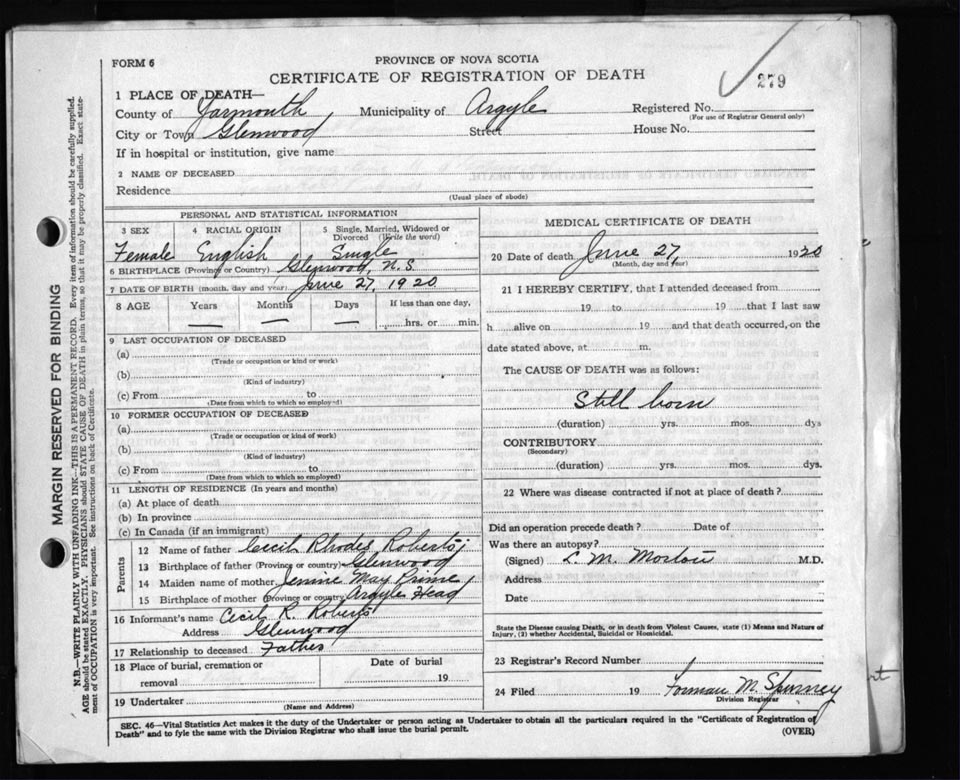 FORM 6
PROVINCE OF NOVA SCOTIA
CERTIFICATE OF REGISTRATION OF DEATH
279
1 PLACE OF DEATH—
County of Yarmouth Municipality of Argyle Registered No.
(For use of Registrar General only)
City or Town Glenwood Street House No.
If in hospital or institution, give name
2 NAME OF DECEASED
Residence
(Usual place of abode)
PERSONAL AND STATISTICAL INFORMATION
3 SEX 4 RACIAL ORIGIN 5 Single, Married, Widowed or Divorced (Write the word)
Female English Single
6 BIRTHPLACE (Province or Country) Glenwood, N.S.
7 DATE OF BIRTH (month, day and year) June 27, 1920
8 AGE Years Months Days If less than one day,
— — — hrs. or min.
9 LAST OCCUPATION OF DECEASED
(a)
(Trade or occupation or kind or work)
(b)
(Kind of industry)
(c) From to
(Date from which to which so employed)
10 FORMER OCCUPATION OF DECEASED
(a)
(Trade or occupation or kind of work)
(b)
(Kind of industry)
(c) From to
(Date from which to which so employed)
11 LENGTH OF RESIDENCE (In years and months)
(a) At place of death
(b) In province
(c) In Canada (if an immigrant)
Parents
12 Name of father Cecil Rhodes Roberts
13 Birthplace of father (Province or country) Glenwood
14 Maiden name of mother May Prime
15 Birthplace of mother (Province or country) Argyle Head
16 Informant's name Cecil R. Roberts
Address Glenwood
17 Relationship to deceased Father
18 Place of burial, cremation or removal Date of burial
19
19 Undertaker
(Name and Address)
MEDICAL CERTIFICATE OF DEATH
20 Date of death June 27, 1920
(Month, day and year)
21 I HEREBY CERTIFY, that I attended deceased from
19 to 19 that I last saw
h alive on 19 and that death occurred, on the
date stated above, at m.
The CAUSE OF DEATH was as follows:
Still born
(duration) yrs. mos. dys
CONTRIBUTORY
(Secondary)
(duration) yrs. mos. dys.
22 Where was disease contracted if not at place of death?
Did an operation precede death? Date of
Was there an autopsy?
(Signed) L. M. Morton M.D.
Address
Date
State the Disease causing Death, or in death from Violent Causes, state (1) Means and Nature of
Injury, (2) whether Accidental, Suicidal or Homicidal.
23 Registrar's Record Number 1
24 Filed 19 Forman M. Spinney
Division Registrar
SEC. 46—Vital Statistics Act makes it the duty of the Undertaker or person acting as Undertaker to obtain all the particulars required in the "Certificate of Registration of
Death" and to fyle the same with the Division Registrar who shall issue the burial permit.
(OVER)
MARGIN RESERVED FOR BINDING
N.B.—WRITE PLAINLY WITH UNFADING INK—THIS IS A PERMANENT RECORD. Every item of information should be carefully supplied.
AGE should be stated EXACTLY. PHYSICIANS should STATE CAUSE OF DEATH in plain terms, so that it may be properly classified. Exact state-
ment of OCCUPATION is very important. See instructions on back of Certificate.